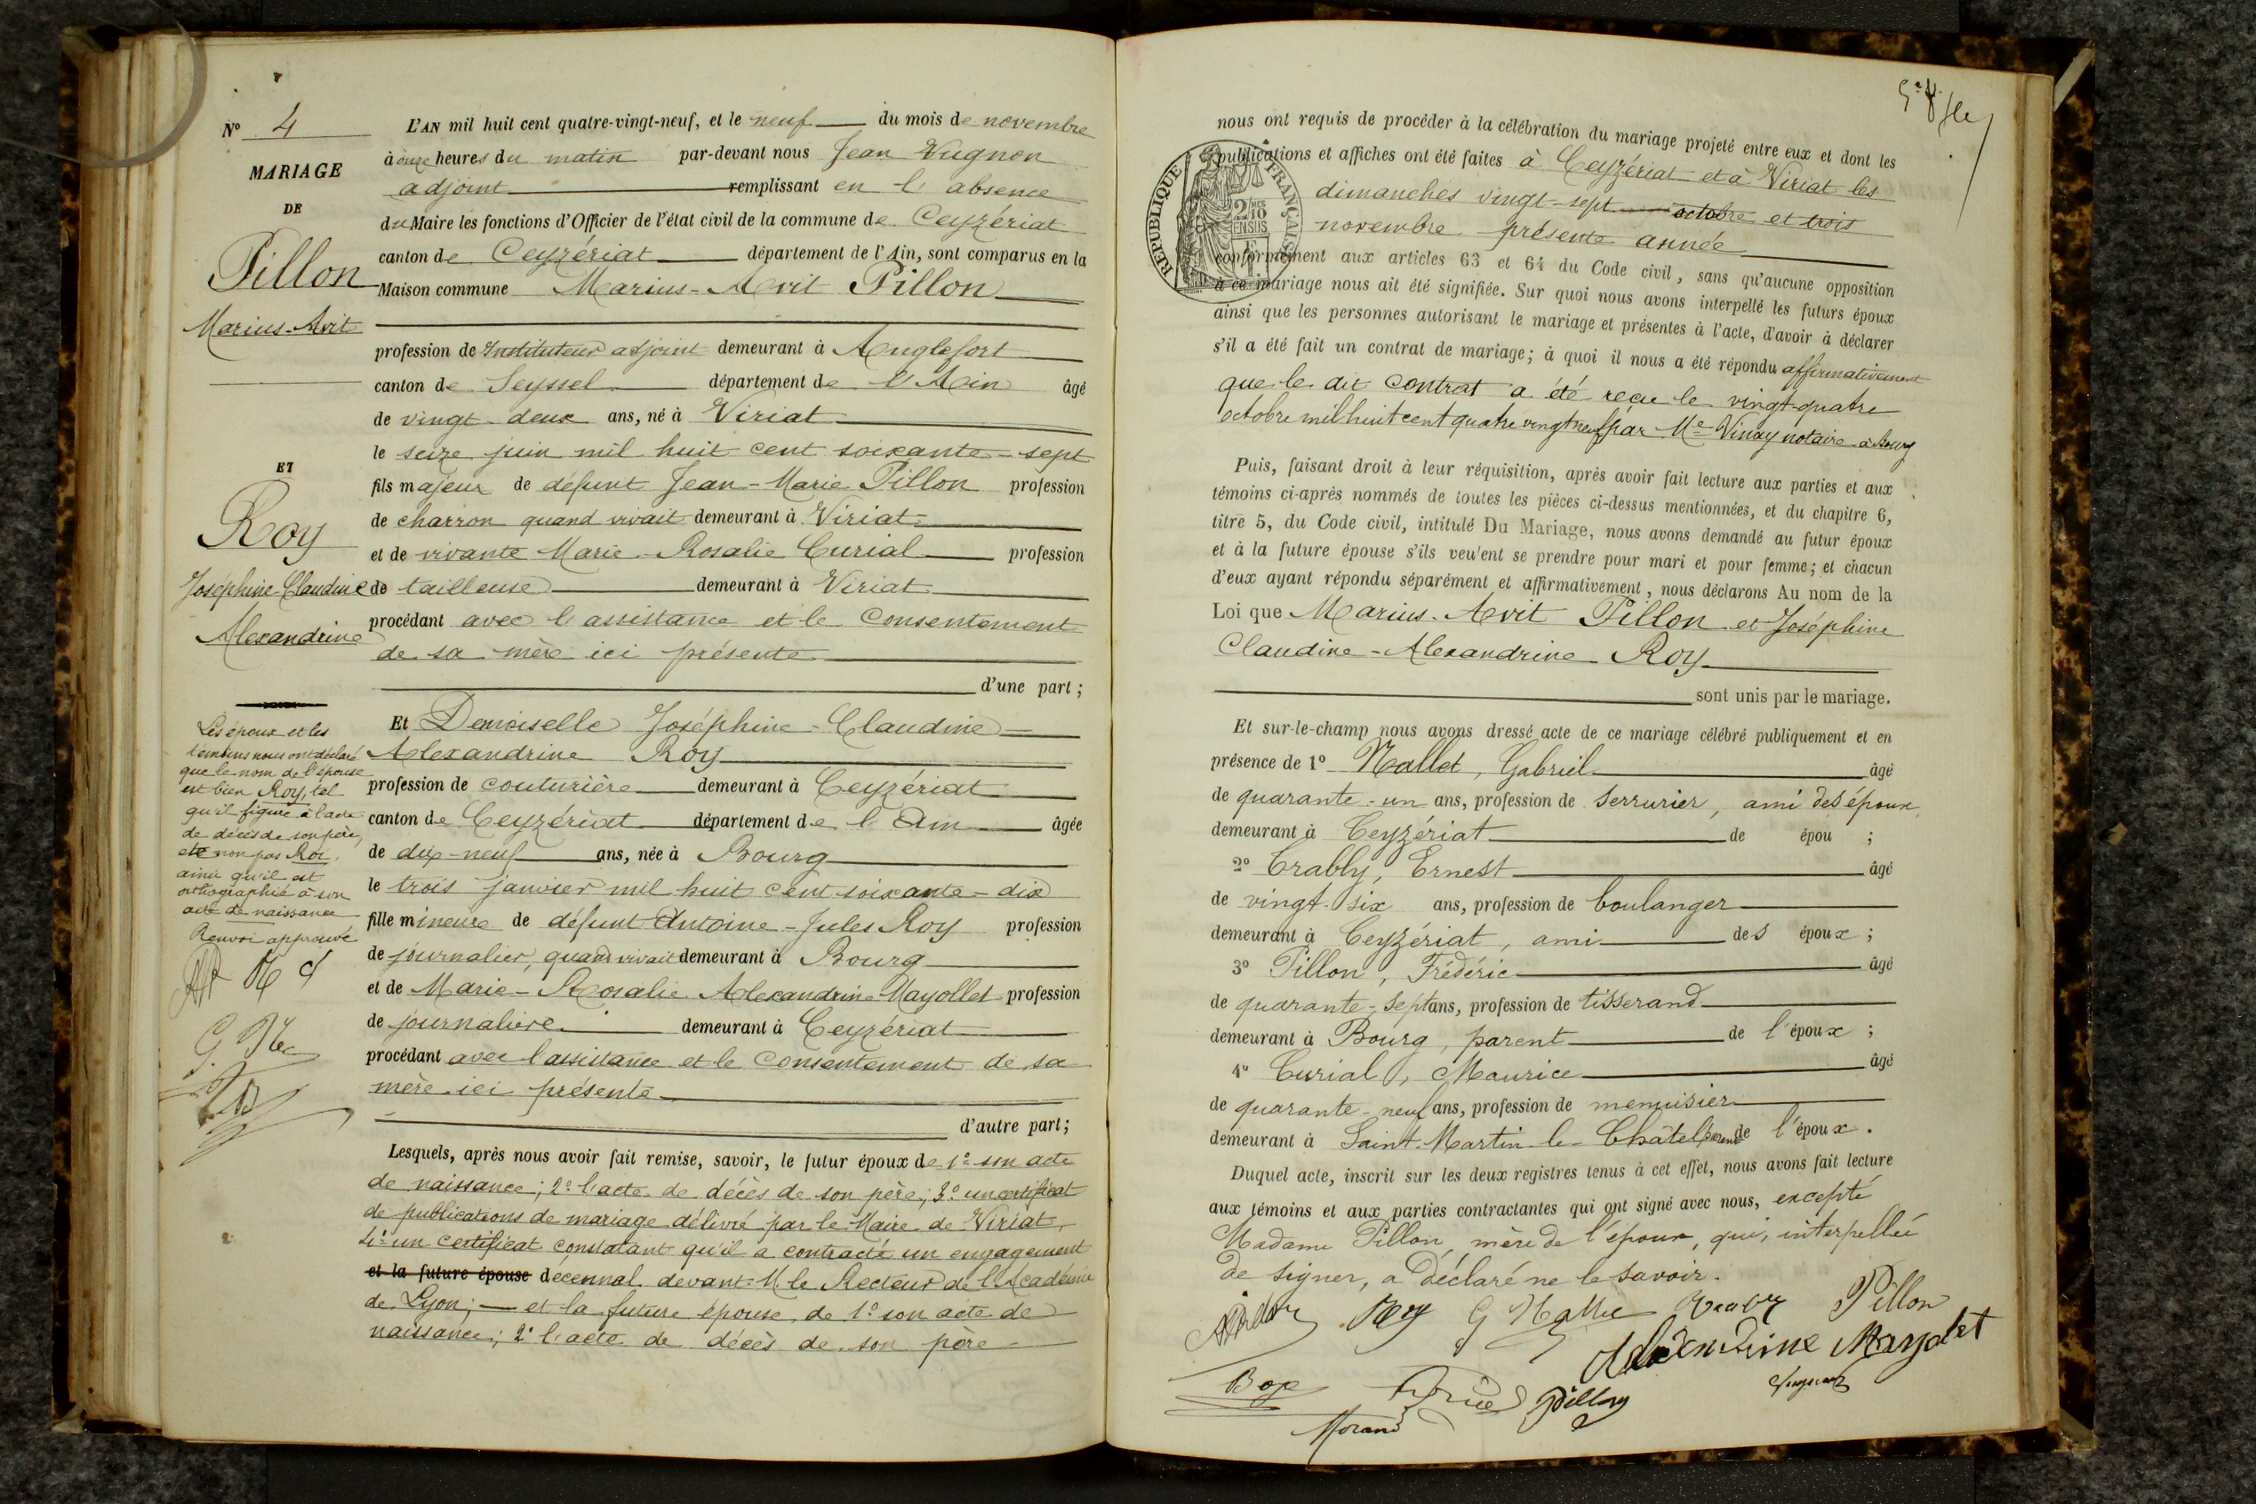 Nº 4
MARIAGE
DE
Pillon
Marius-Avit
ET
Roy
Joséphine-Claudine
Alexandrine
Les époux et les
témoins nous ont déclaré
que le nom de l'épouse
est bien Roy, tel
qu'il figure à l'acte
de décès de son père,
et non pas Roi,
ainsi qu'il est
orthographié à son
acte de naissance
Renvoi approuvé
L'AN mil huit cent quatre-vingt-neuf, et le neuf du mois de novembre
à onze heures du matin par-devant nous Jean Vugnon
adjoint remplissant en l'absence
du Maire les fonctions d'Officier de l'état civil de la commune de Ceyzériat
canton de Ceyzériat département de l'Ain, sont comparus en la
Maison commune Marius-Avit Pillon
profession de Instituteur adjoint demeurant à Anglefort
canton de Seyssel département de l'Ain âgé
de vingt-deux ans, né à Viriat
le seize juin mil huit cent soixante-sept
fils majeur de défunt Jean-Marie Pillon profession
de charron quand vivait demeurant à Viriat
et de vivante Marie-Rosalie Curial profession
de tailleuse demeurant à Viriat
procédant avec l'assistance et le consentement
de sa mère ici présente
d'une part ;
Et Demoiselle Joséphine-Claudine
Alexandrine Roy
profession de couturière demeurant à Ceyzériat
canton de Ceyzériat département de l'Ain âgée
de dix-neuf ans, née à Bourg
le trois janvier mil huit cent soixante-dix
fille mineure de défunt Antoine-Jules Roy profession
de journalier, quand vivait demeurant à Bourg
et de Marie-Rosalie Alexandrine Mayollet profession
de journalière demeurant à Ceyzériat
procédant avec l'assistance et le consentement de sa
mère ici présente
d'autre part ;
Lesquels, après nous avoir fait remise, savoir, le futur époux de 1º son acte
de naissance ; 2º l'acte de décès de son père ; 3º un certificat
de publications de mariage délivré par le Maire de Viriat,
4º un certificat constatant qu'il a contracté un engagement
et la future épouse décennal devant M. le Recteur de l'Académie
de Lyon ; — et la future épouse de 1º son acte de
naissance ; 2º l'acte de décès de son père
nous ont requis de procéder à la célébration du mariage projeté entre eux et dont les
publications et affiches ont été faites à Ceyzériat et à Viriat les
dimanches vingt-sept octobre et trois
novembre présente année
RÉPUBLIQUE FRANÇAISE
conformément aux articles 63 et 64 du Code civil, sans qu'aucune opposition
à ce mariage nous ait été signifiée. Sur quoi nous avons interpellé les futurs époux
ainsi que les personnes autorisant le mariage et présentes à l'acte, d'avoir à déclarer
s'il a été fait un contrat de mariage ; à quoi il nous a été répondu affirmativement
que le dit contrat a été reçu le vingt-quatre
octobre mil huit cent quatre vingt neuf par Me Vinay notaire à Bourg
Puis, faisant droit à leur réquisition, après avoir fait lecture aux parties et aux
témoins ci-après nommés de toutes les pièces ci-dessus mentionnées, et du chapitre 6,
titre 5, du Code civil, intitulé Du Mariage, nous avons demandé au futur époux
et à la future épouse s'ils veulent se prendre pour mari et pour femme ; et chacun
d'eux ayant répondu séparément et affirmativement, nous déclarons Au nom de la
Loi que Marius-Avit Pillon et Joséphine
Claudine-Alexandrine Roy
sont unis par le mariage.
Et sur-le-champ nous avons dressé acte de ce mariage célébré publiquement et en
présence de 1º Mallet, Gabriel âgé
de quarante-un ans, profession de serrurier, ami des époux,
demeurant à Ceyzériat de épou ;
2º Crably, Ernest âgé
de vingt-six ans, profession de boulanger
demeurant à Ceyzériat, ami des époux ;
3º Pillon, Frédéric âgé
de quarante-sept ans, profession de tisserand
demeurant à Bourg, parent de l'époux ;
4º Curial, Maurice âgé
de quarante-neuf ans, profession de menuisier
demeurant à Saint-Martin-le-Châtel, parent de l'époux.
Duquel acte, inscrit sur les deux registres tenus à cet effet, nous avons fait lecture
aux témoins et aux parties contractantes qui ont signé avec nous, excepté
Madame Pillon mère de l'époux, qui, interpellée
de signer, a déclaré ne le savoir.
Roy G Mallet Pillon
Alexandrine Mayolet
Pillon
Morand